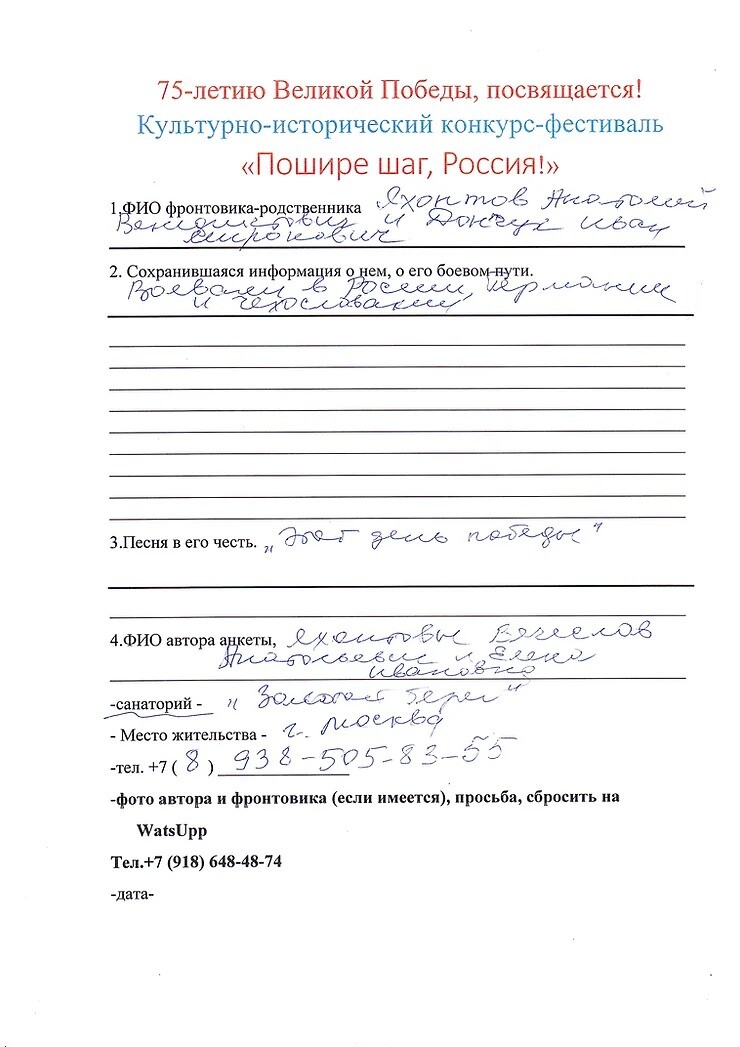 75-летию Великой Победы, посвящается!
Культурно-исторический конкурс-фестиваль
«Пошире шаг, Россия!»
1.ФИО фронтовика-родственника Яхонтов Анатолий
Венедиктович и Дончук Иван
Миронович
2. Сохранившаяся информация о нем, о его боевом пути.
Воевали в России, Германии
и Чехословакии
3.Песня в его честь. „Этот день победы"
4.ФИО автора анкеты, Яхонтовы Вячеслав
Анатольевич и Елена
Ивановна
-санаторий - „Золотой берег"
- Место жительства - г. Москва
-тел. +7 ( 8 ) 938-505-83-55
-фото автора и фронтовика (если имеется), просьба, сбросить на
WatsUpp
Тел.+7 (918) 648-48-74
-дата-